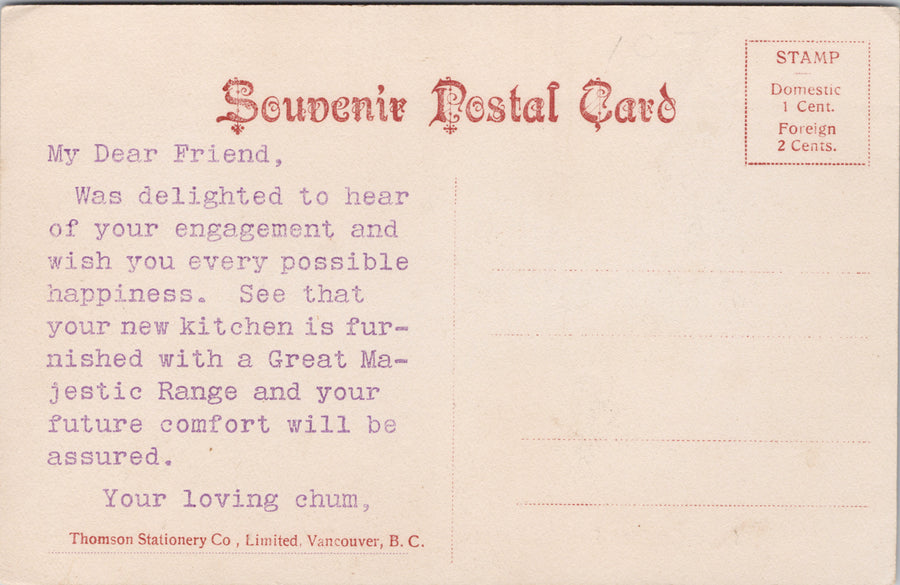 STAMP
Domestic
1 Cent.
Foreign
2 Cents.
Souvenir Postal Card
My Dear Friend,
Was delighted to hear
of your engagement and
wish you every possible
happiness. See that
your new kitchen is fur-
nished with a Great Ma-
jestic Range and your
future comfort will be
assured.
Your loving chum,
Thomson Stationery Co , Limited, Vancouver, B. C.